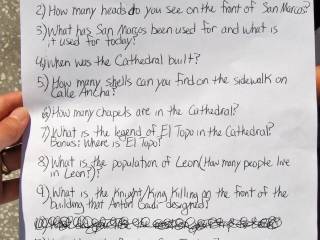 2) How many heads do you see on the front of San Marcos?
3) What has San Marcos been used for and what is
it used for today?
4) When was the Cathedral built?
5) How many shells can you find on the sidewalk on
Calle Ancha?
6) How many chapels are in the Cathedral?
7) What is the legend of El Topo in the Cathedral?
Bonus: Where is El Topo?
8) What is the population of Leon (How many people live
in Leon?)?
9) What is the Knight/King Killing on the front of the
building that Anton Gadi designed?